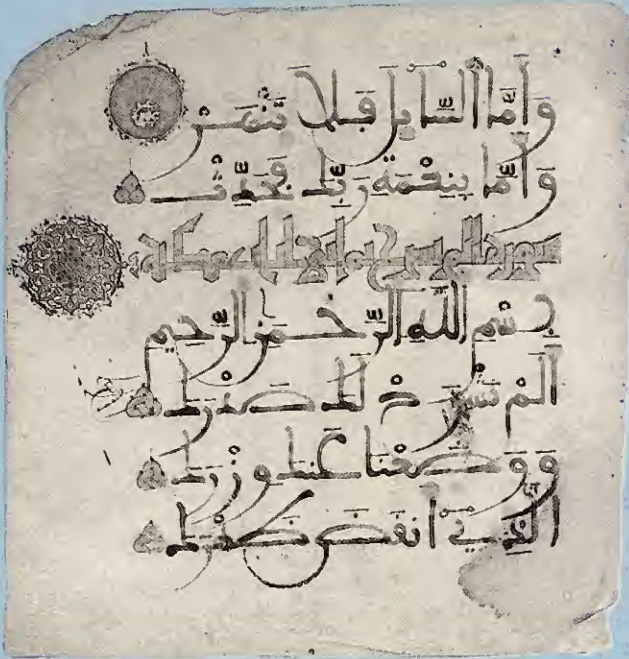 وَأَمَّا السَّايِلَ فَلَا تَنْهَرْ
وَأَمَّا بِنِعْمَةِ رَبِّكَ فَحَدِّثْ
سورة الم نشرح ايات مكية
بِسْمِ اللَّهِ الرَّحْمَنِ الرَّحِيمِ
أَلَمْ نَشْرَحْ لَكَ صَدْرَكَ
وَوَضَعْنَا عَنكَ وِزْرَكَ
الَّذِي أَنقَضَ ظَهْرَكَ